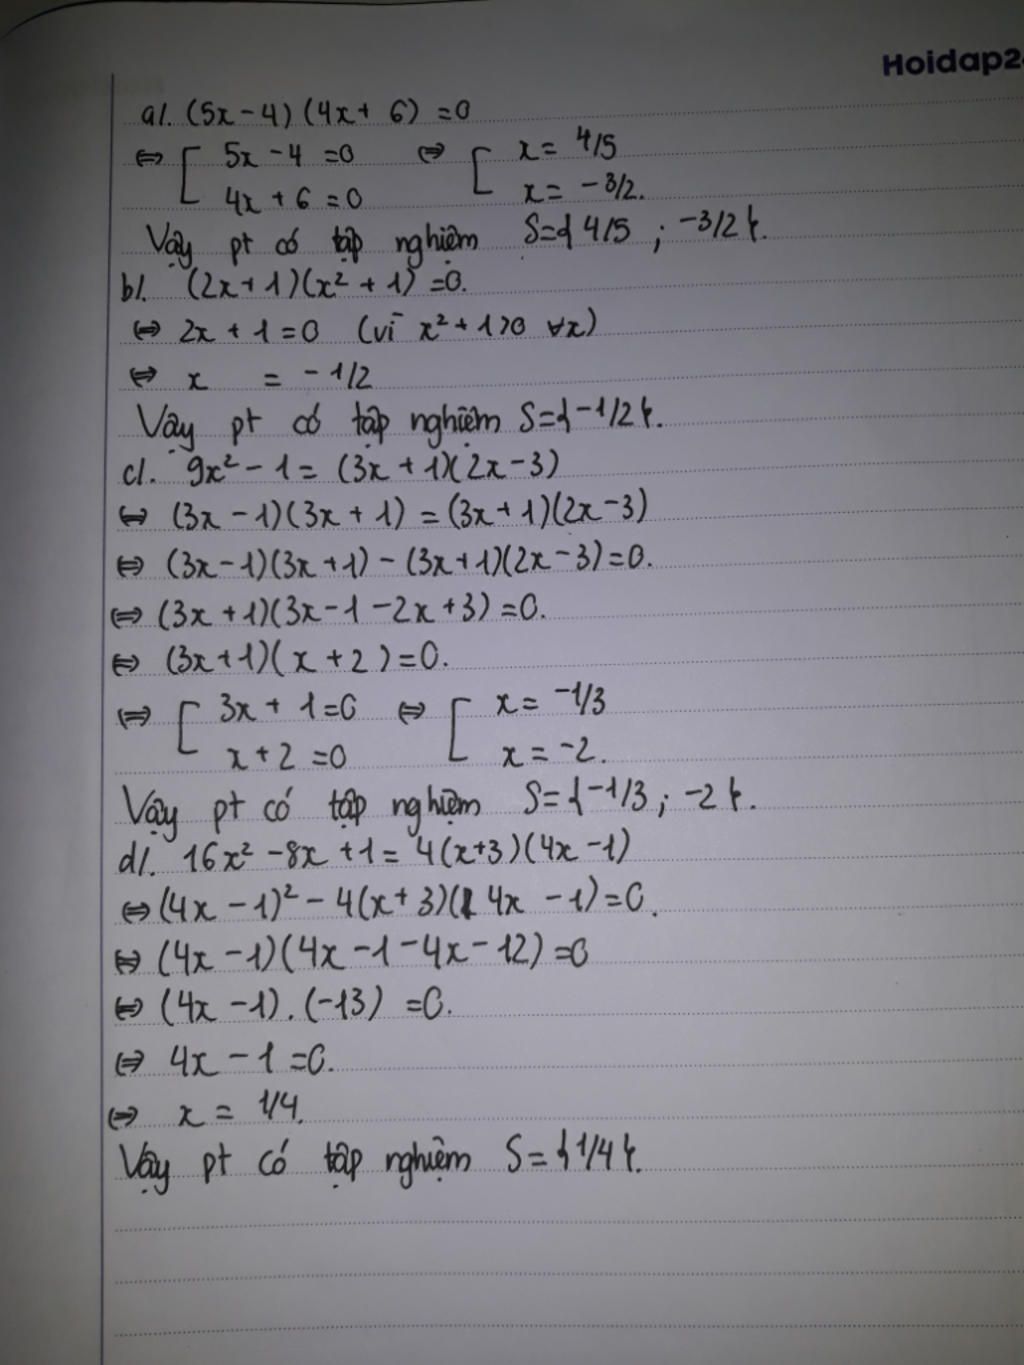 Hoidap2
a/. (5x - 4) (4x + 6) = 0
⇔ [ 5x - 4 = 0 ⇔ [ x = 4/5
4x + 6 = 0 x = -3/2.
Vậy pt có tập nghiệm S={ 4/5 ; -3/2 }.
b/. (2x + 1)(x² + 1) = 0.
⇔ 2x + 1 = 0 (vì x² + 1 > 0 ∀x)
⇔ x = -1/2
Vậy pt có tập nghiệm S={-1/2}.
c/. 9x² - 1 = (3x + 1)(2x - 3)
⇔ (3x - 1)(3x + 1) = (3x + 1)(2x - 3)
⇔ (3x - 1)(3x + 1) - (3x + 1)(2x - 3) = 0.
⇔ (3x + 1)(3x - 1 - 2x + 3) = 0.
⇔ (3x + 1)( x + 2 ) = 0.
⇔ [ 3x + 1 = 0 ⇔ [ x = -1/3
x + 2 = 0 x = -2.
Vậy pt có tập nghiệm S={-1/3 ; -2}.
d/. 16x² - 8x + 1 = 4(x+3)(4x - 1)
⇔ (4x - 1)² - 4(x + 3)(4x - 1) = 0.
⇔ (4x - 1)(4x - 1 - 4x - 12) = 0
⇔ (4x - 1) . (-13) = 0.
⇔ 4x - 1 = 0.
⇔ x = 1/4.
Vậy pt có tập nghiệm S = {1/4}.